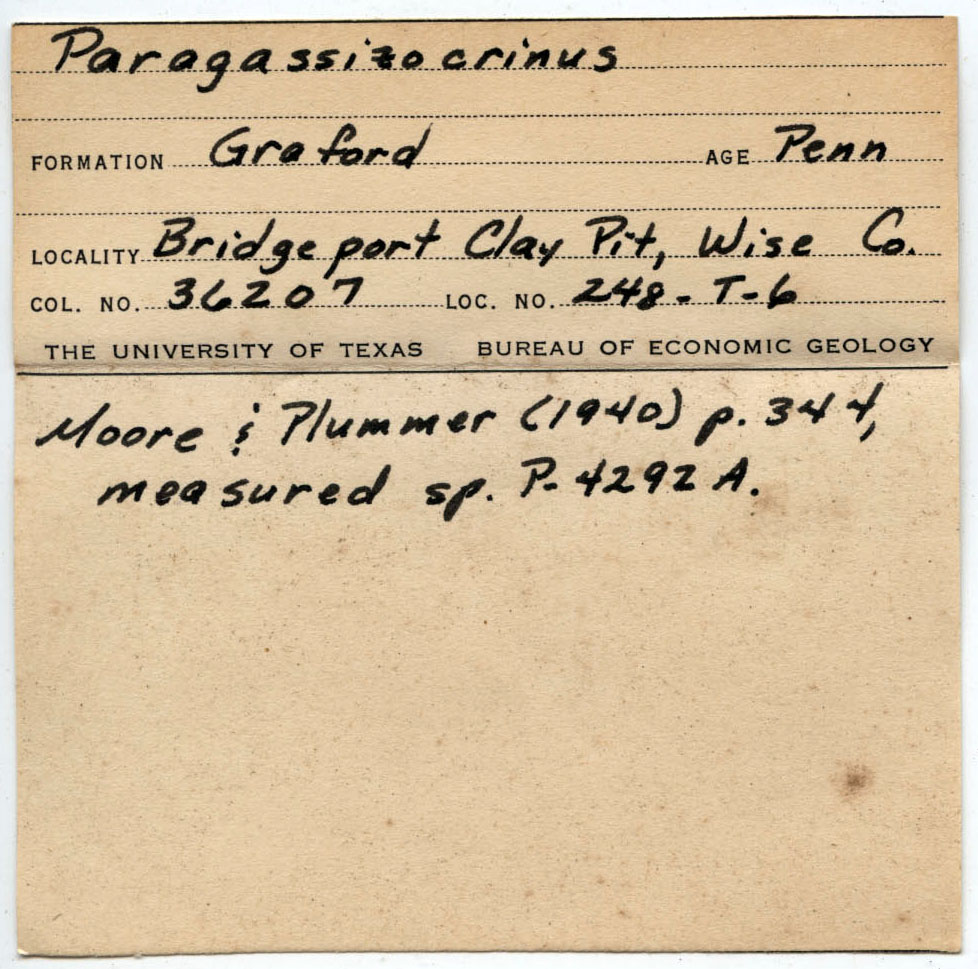 Paragassizocrinus
FORMATION Graford AGE Penn
LOCALITY Bridgeport Clay Pit, Wise Co.
COL. NO. 36207 LOC. NO. 248-T-6
THE UNIVERSITY OF TEXAS BUREAU OF ECONOMIC GEOLOGY
Moore & Plummer (1940) p. 344,
measured sp. P-4292A.